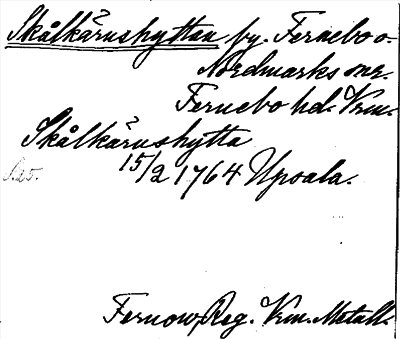 Skålkärnshyttan by. Fernebo o.
Nordmarks snr.
Fernebo hd. Vrm.
Skålkärnshytta
15/2 1764 Upsala.
Fernow, Reg. Vrm. Metall.